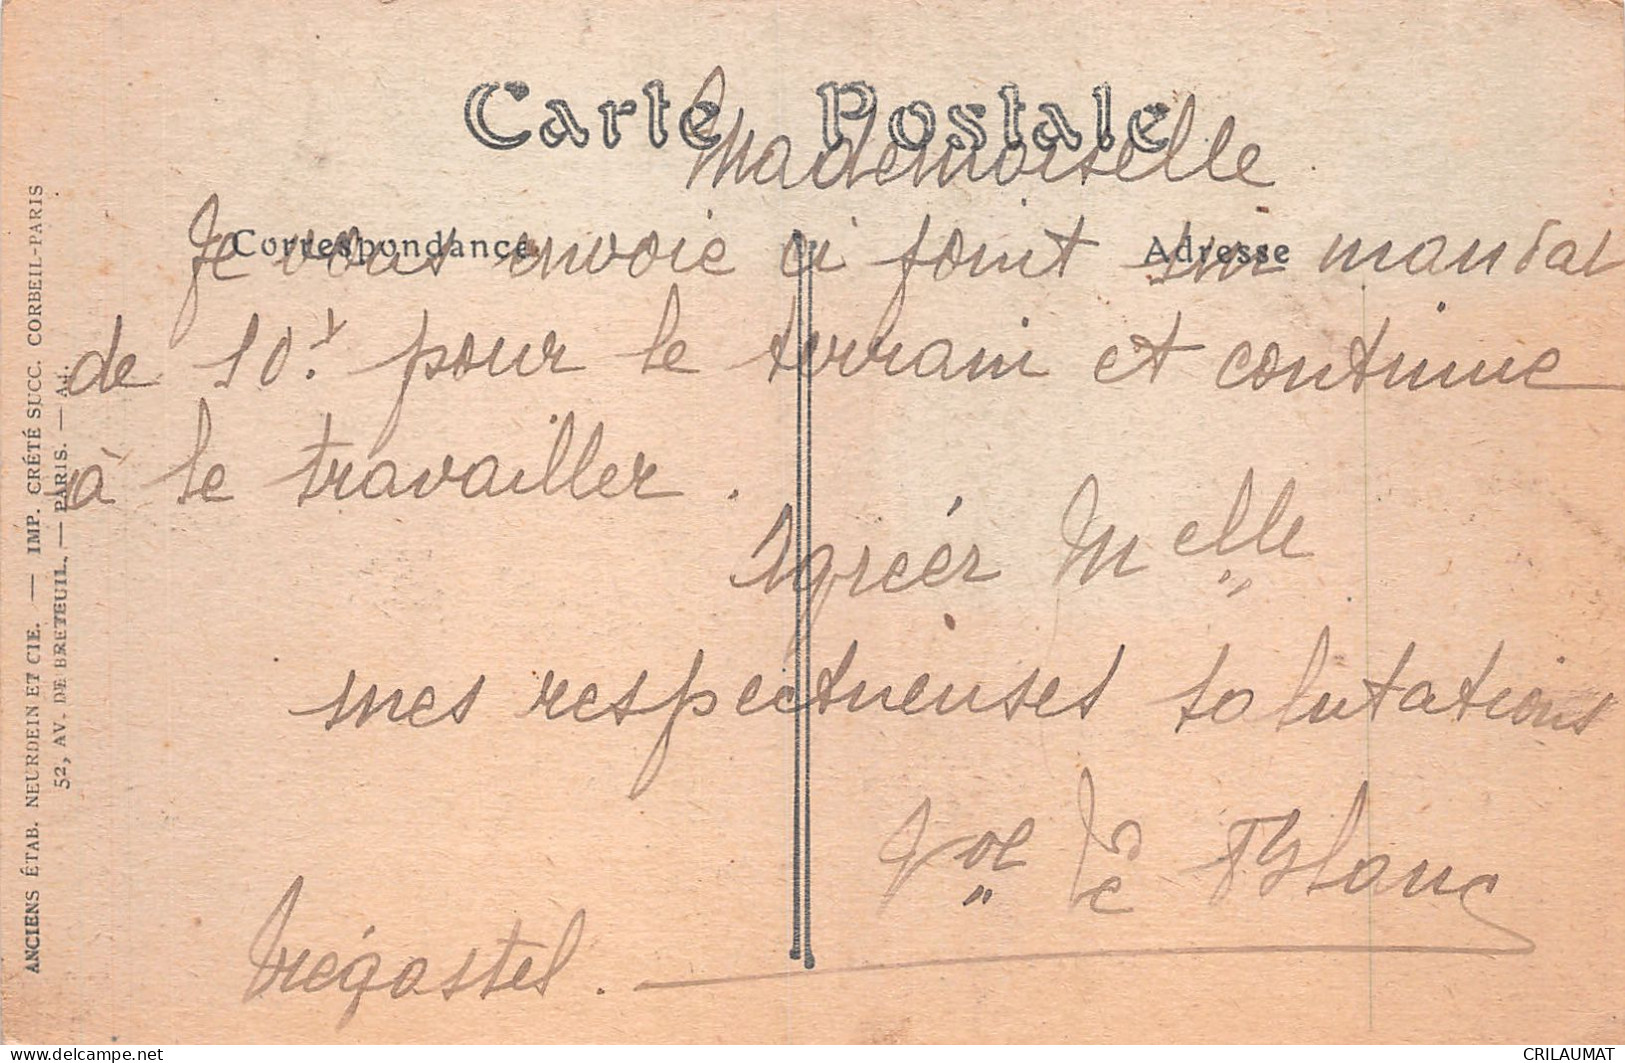 Carte Postale
Mademoiselle
Correspondance
Adresse
Je vous envoie ci joint un mandat
de 10f pour le terrain et continue
à le travailler.
Agréer Melle
mes respectueuses salutations
Le Blanc
Trégastel.
ANCIENS ÉTAB. NEURDEIN ET CIE. — IMP. CRÉTÉ SUCC. CORBEIL-PARIS
52, AV. DE BRETEUIL. — PARIS. —
delcampe.net
CRILAUMAT